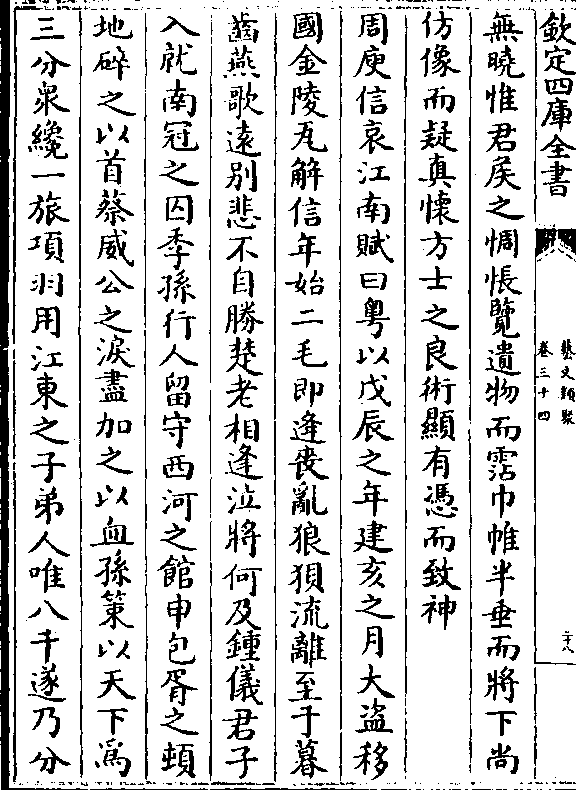 欽定四庫全書
藝文類聚
卷三十四
二十八
無曉惟君矦之惆悵覽遺物而霑巾帷半垂而將下尚
仿像而疑真懷方士之良術顯有憑而致神
周庾信哀江南賦曰粤以戊辰之年建亥之月大盗移
國金陵瓦解信年始二毛即逢喪亂狼狽流離至于暮
齒燕歌遠别悲不自勝楚老相逢泣將何及鍾儀君子
入就南冠之囚季孫行人留守西河之館申包胥之頓
地碎之以首蔡威公之淚盡加之以血孫策以天下爲
三分衆纔一旅項羽用江東之子弟人唯八千遂乃分